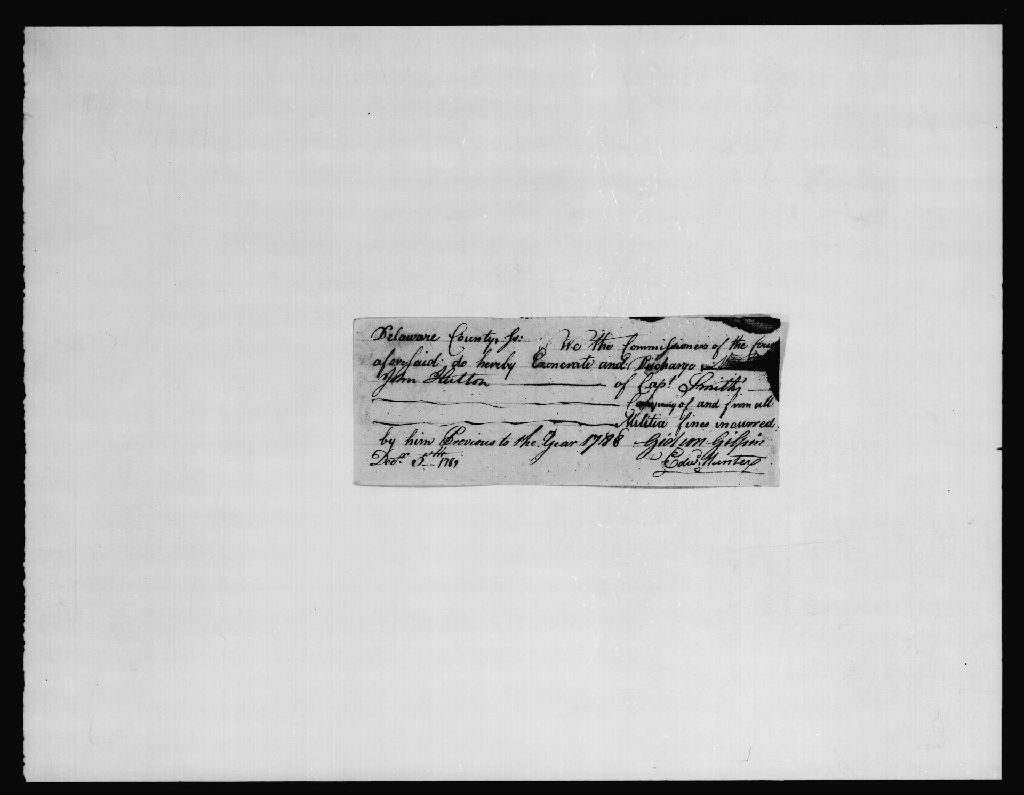 Delaware County Ss: We the Commissioners of the Coun
aforesaid do hereby Exonerate and Discharge
John Hutton of Capt. Smiths
Company of and from all
Militia fines incurred
by him Previous to the Year 1788 Gideon Gilpin
Decr. 5th 1789 Edwd. Hunter